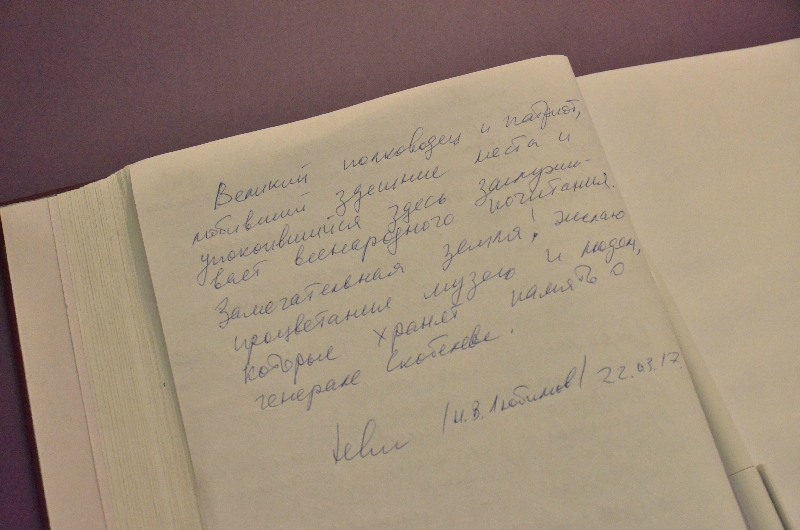 Великий полководец и патриот,
любивший здешние места и
упокоившийся здесь заслужи-
вает всенародного почитания.
Замечательная земля! Желаю
процветания музею и людям,
которые хранят память о
генерале Скобелеве.
/Н.В. Любимов/ 22.03.17.